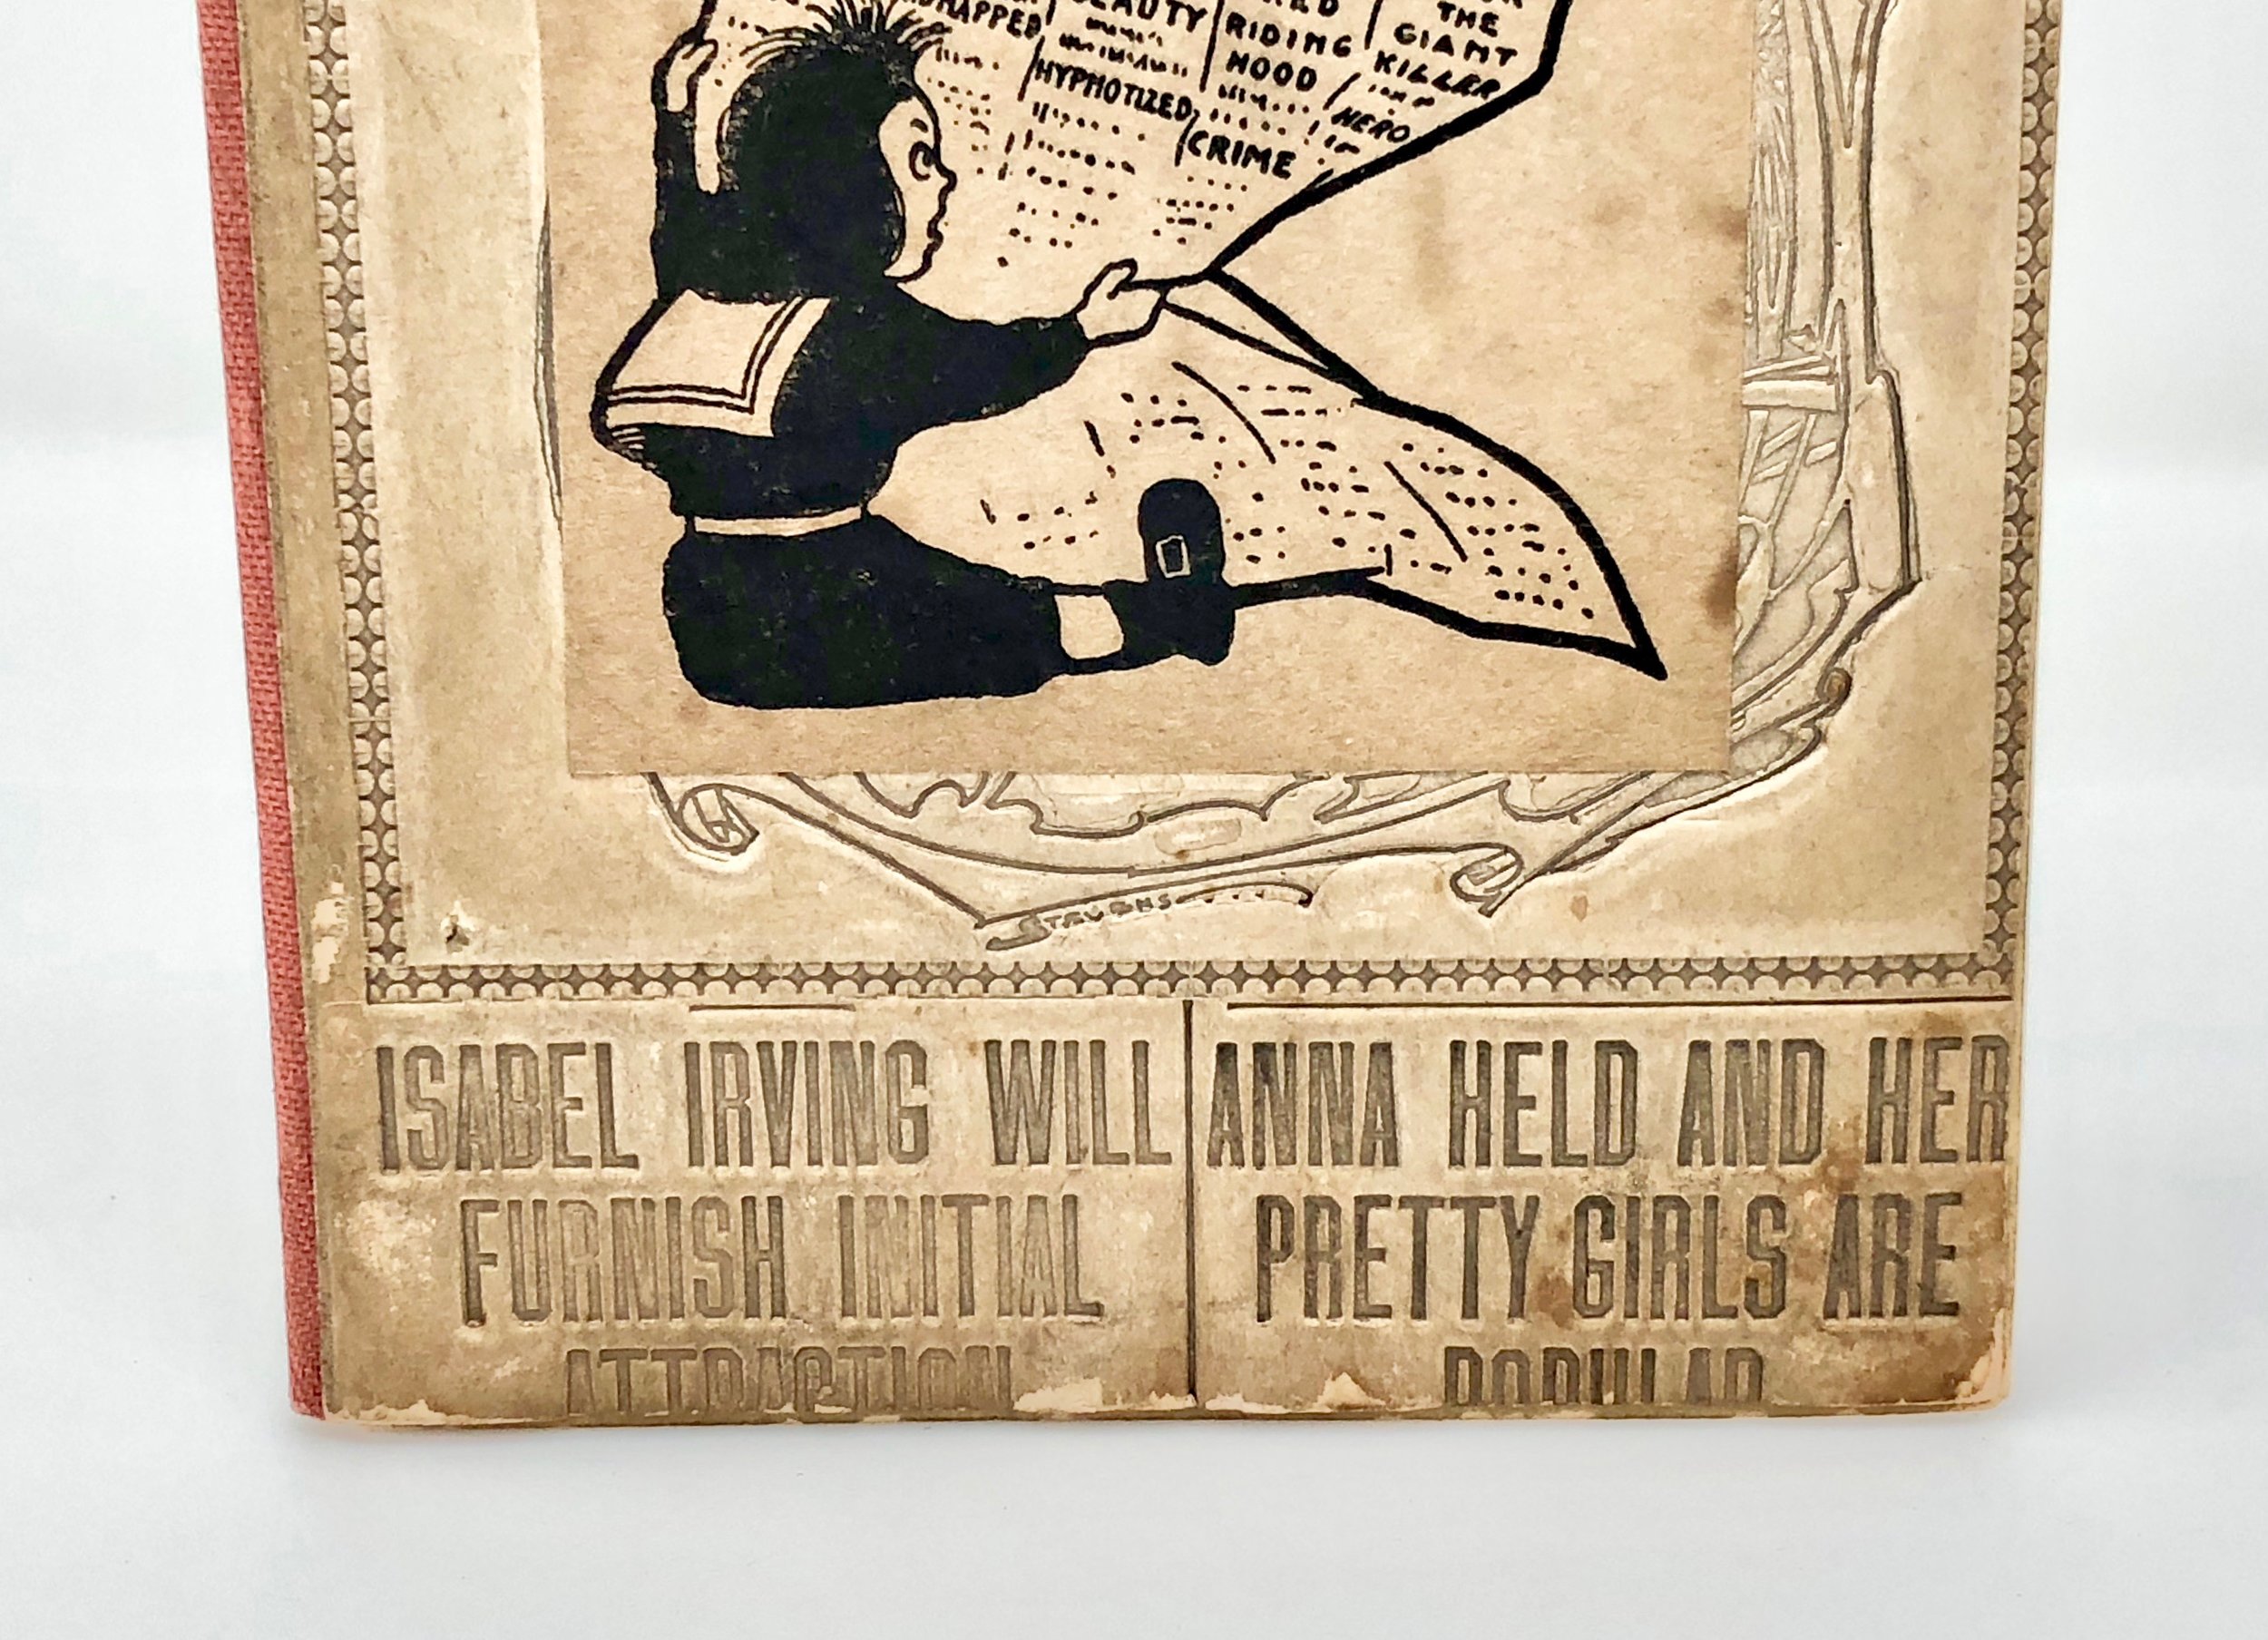 BEAUTY
RIDING
HOOD
THE
GIANT
KILLER
HYPHOTIZED
HERO
CRIME
STEVENS
ISABEL IRVING WILL
FURNISH INITIAL
ATTRACTION
ANNA HELD AND HER
PRETTY GIRLS ARE
POPULAR